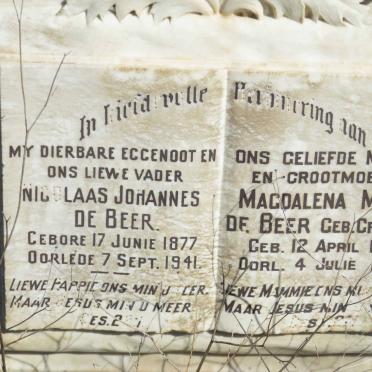 In Liefdevolle
MY DIERBARE EGGENOOT EN
ONS LIEWE VADER
NICOLAAS JOHANNES
DE BEER.
GEBORE 17 JUNIE 1877
OORLEDE 7 SEPT. 1941.
LIEWE PAPPIE ONS MIN U
MAAR JESUS MIN U MEER
Herinnering aan
ONS GELIEFDE
EN GROOTMOE
MAGDALENA M
DE BEER GEB.
GEB. 12 APRIL
OORL. 4 JULIE
LIEWE MAMMIE ONS MI
MAAR JESUS MIN